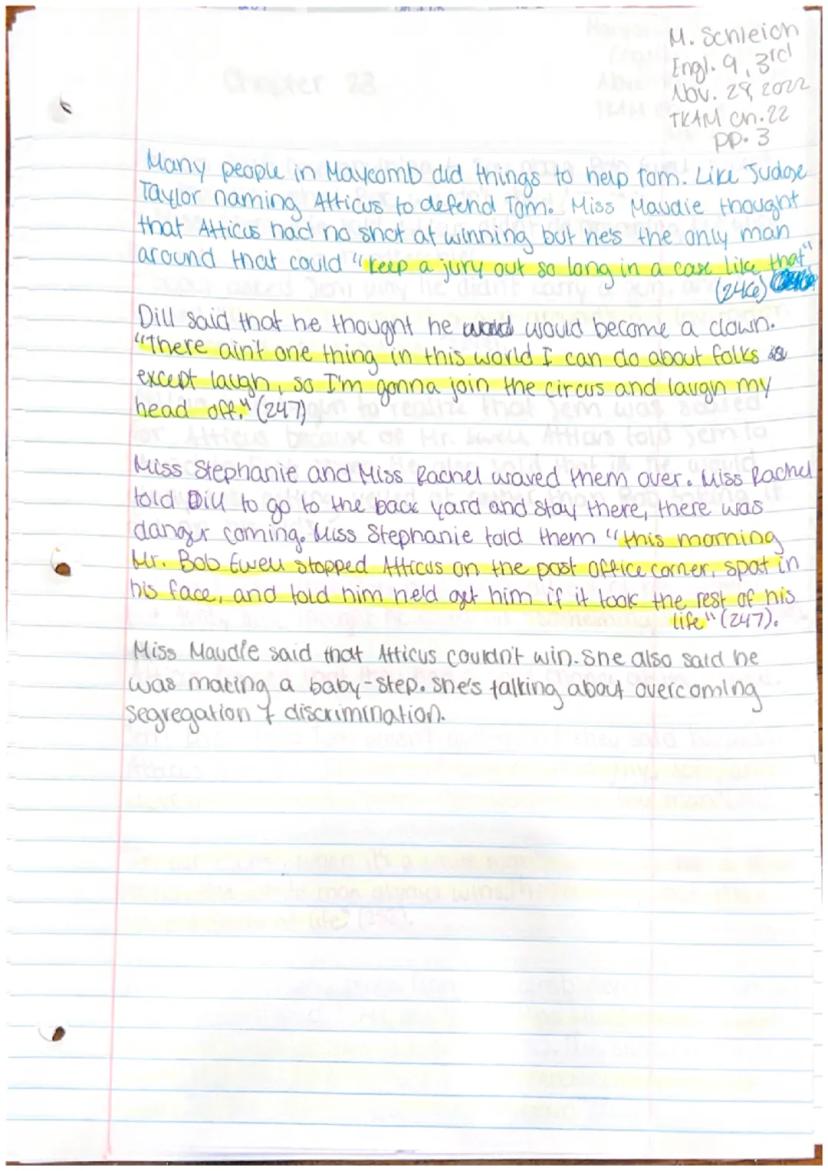 M. Schleich
Engl. 9, 3rd
Nov. 29, 2022
TKAM ch. 22
pp. 3
Many people in Maycomb did things to help Tom. Like Judge
Taylor naming Atticus to defend Tom. Miss Maudie thought
that Atticus had no shot at winning but he's the only man
around that could "keep a jury out so long in a case like that"
(246)
Dill said that he thought he would become a clown.
"There ain't one thing in this world I can do about folks
except laugh, so I'm gonna join the circus and laugh my
head off." (247)
Miss Stephanie and Miss Rachel waved them over. Miss Rachel
told Dill to go to the back yard and stay there, there was
danger coming. Miss Stephanie told them "this morning
Mr. Bob Ewell stopped Atticus on the post office corner, spat in
his face, and told him he'd get him if it took the rest of his
life" (247).
Miss Maudie said that Atticus couldn't win. She also said he
was making a baby-step. She's talking about overcoming
segregation & discrimination.
Chapter 23